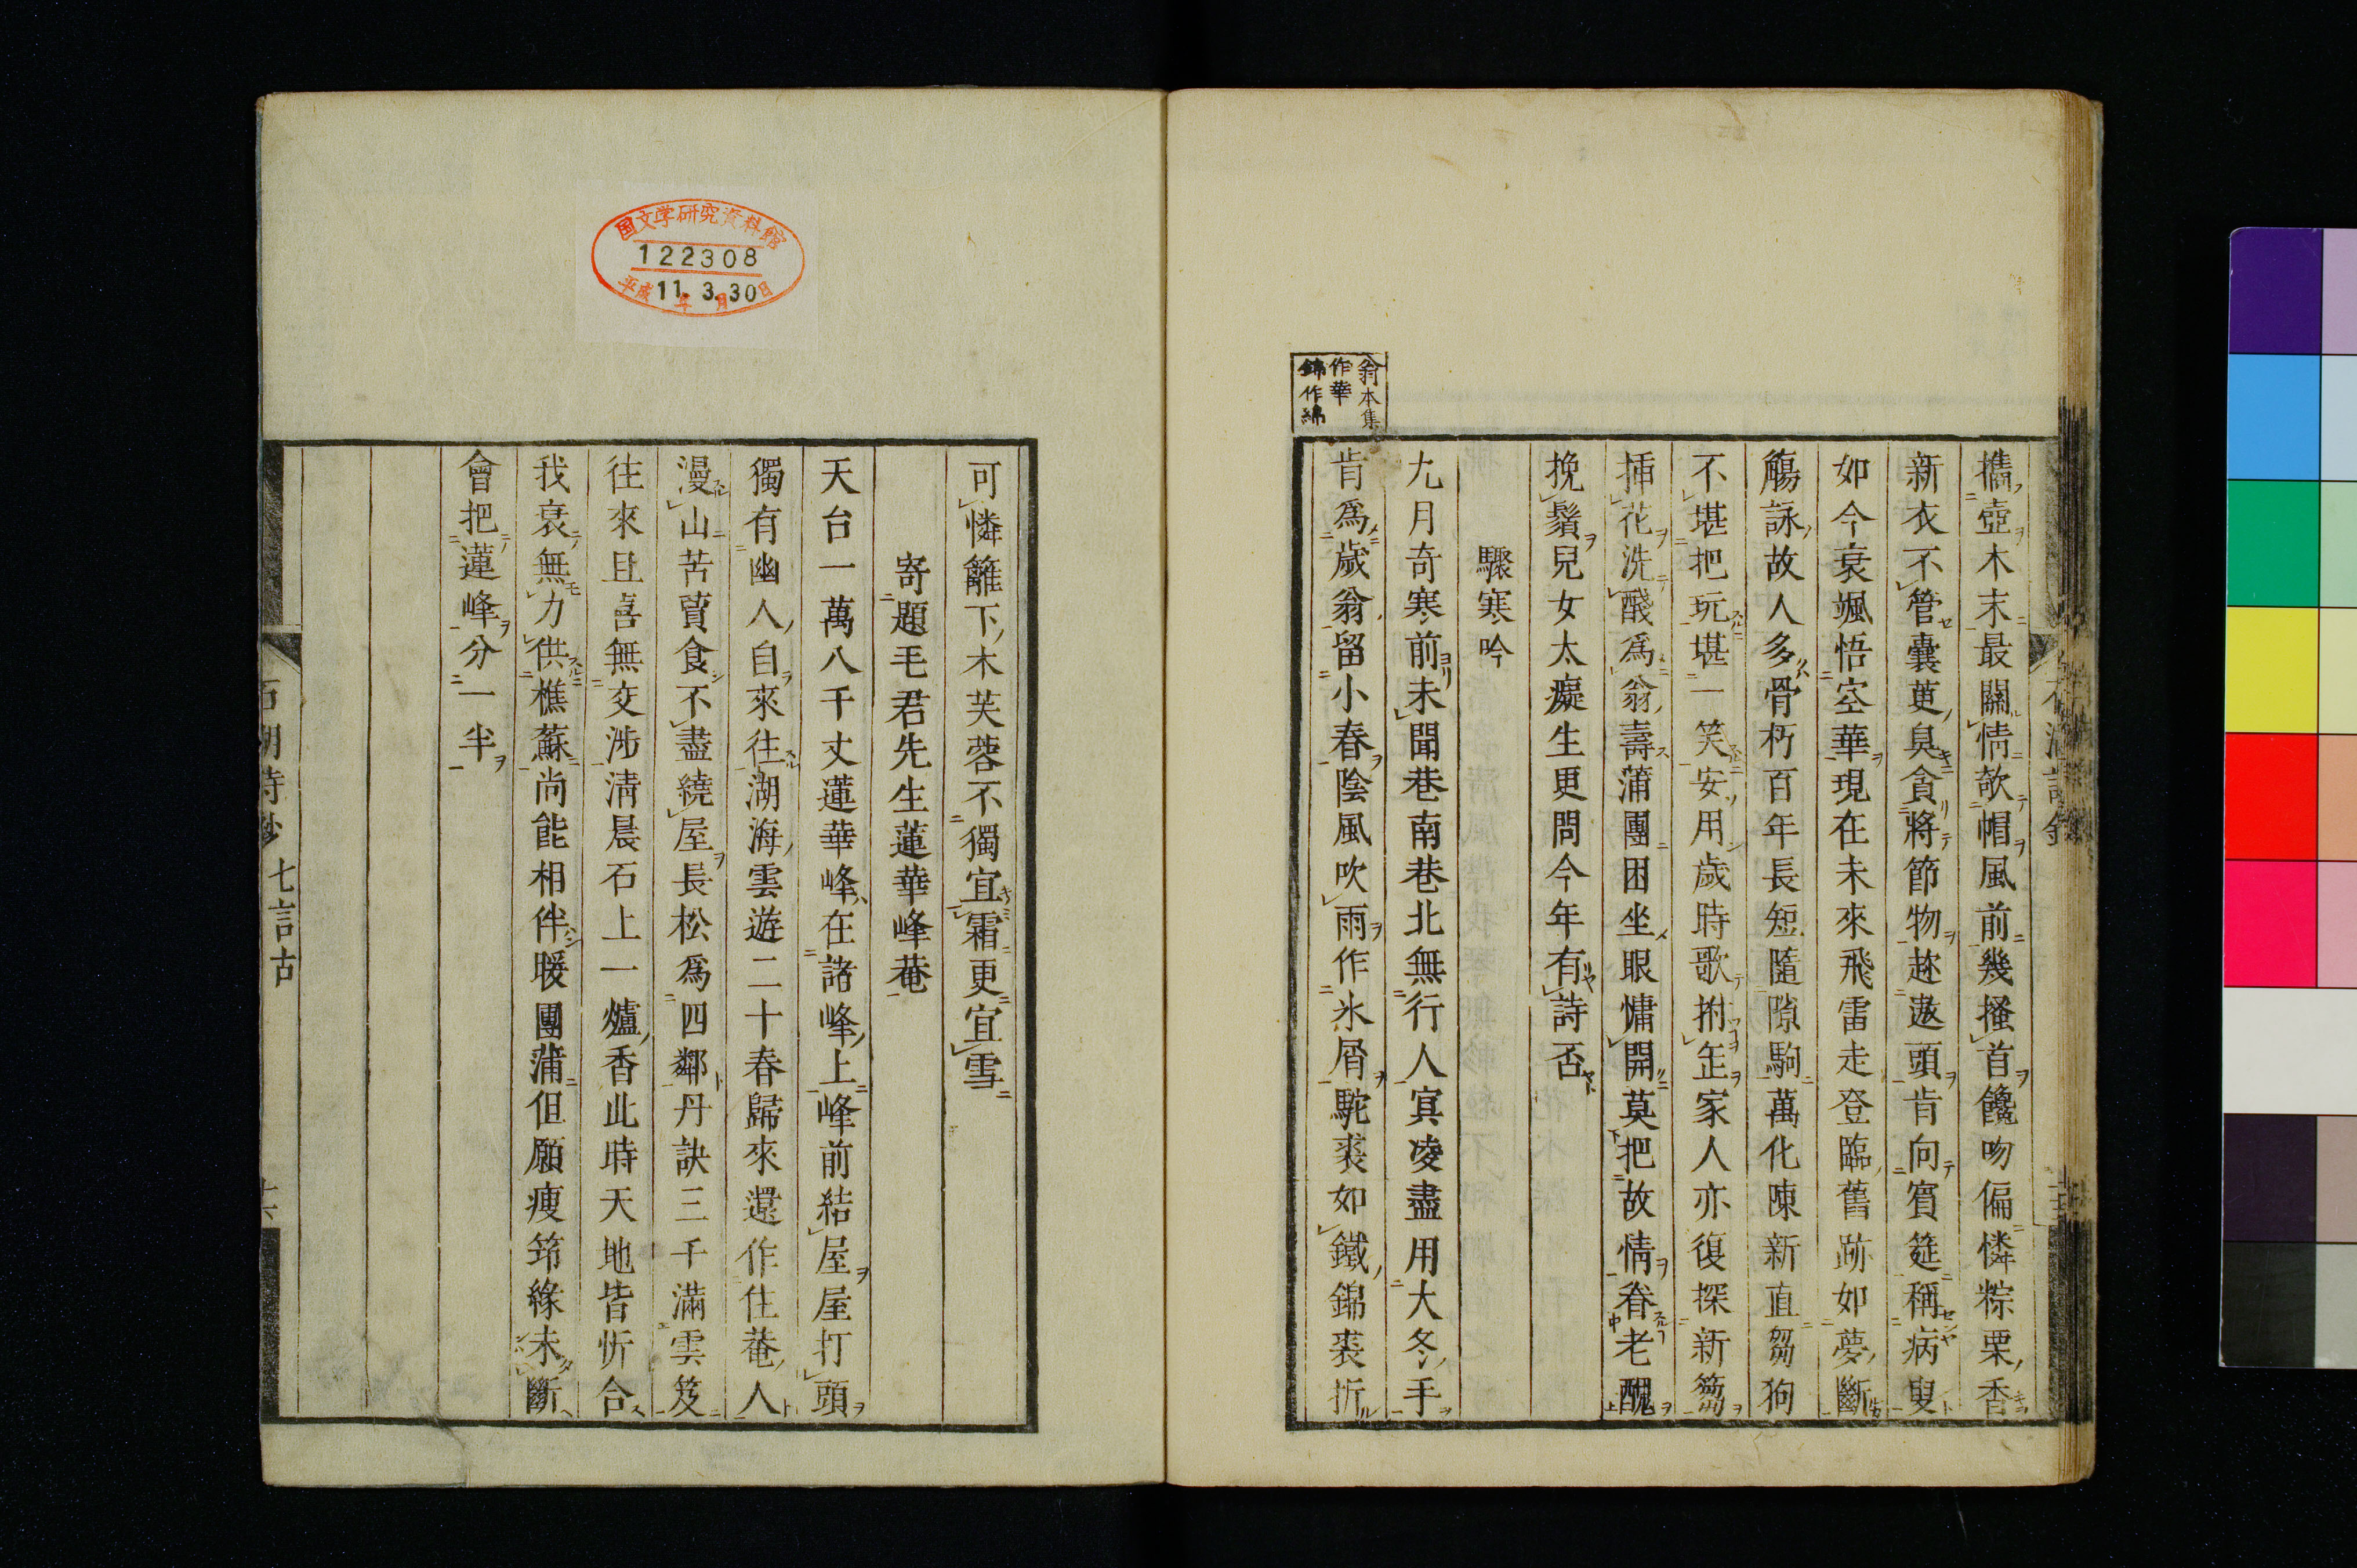 攜壺木末最關情欹帽風前幾搔首饞吻偏憐粽栗香
新衣不管囊萸臭貪將節物趂遨頭肯向賓筵稱病叟
如今衰颯悟空華現在未來飛雷走登臨舊跡如夢斷
觴詠故人多骨朽百年長短隨隙駒萬化陳新直芻狗
不堪把玩堪一笑安用歲時歌拊缶家人亦復探新篘
揷花洗醆爲翁壽蒲團困坐眼慵開莫把故情眷老醜
挽鬚兒女太癡生更問今年有詩否
驟寒吟
九月奇寒前未聞巷南巷北無行人寘凌盡用大冬手
翁本集
作華
錦作綿
肯爲歲翁留小春陰風吹雨作氷屑駝裘如鐵錦裘折
可憐籬下木芙蓉不獨宜霜更宜雪
寄題毛君先生蓮華峰菴
天台一萬八千丈蓮華峰在諸峰上峰前結屋屋打頭
獨有幽人自來往湖海雲遊二十春歸來還作住菴人
漫山苦蕒食不盡繞屋長松爲四鄰丹訣三千滿雲笈
往來且喜無交涉淸晨石上一爐香此時天地皆忻合
我衰無力供樵蘇尚能相伴暖團蒲但願瘦筇緣未斷
會把蓮峰分一半
石湖詩鈔 七言古
十六
国文学研究資料館
122308
平成11年3月30日